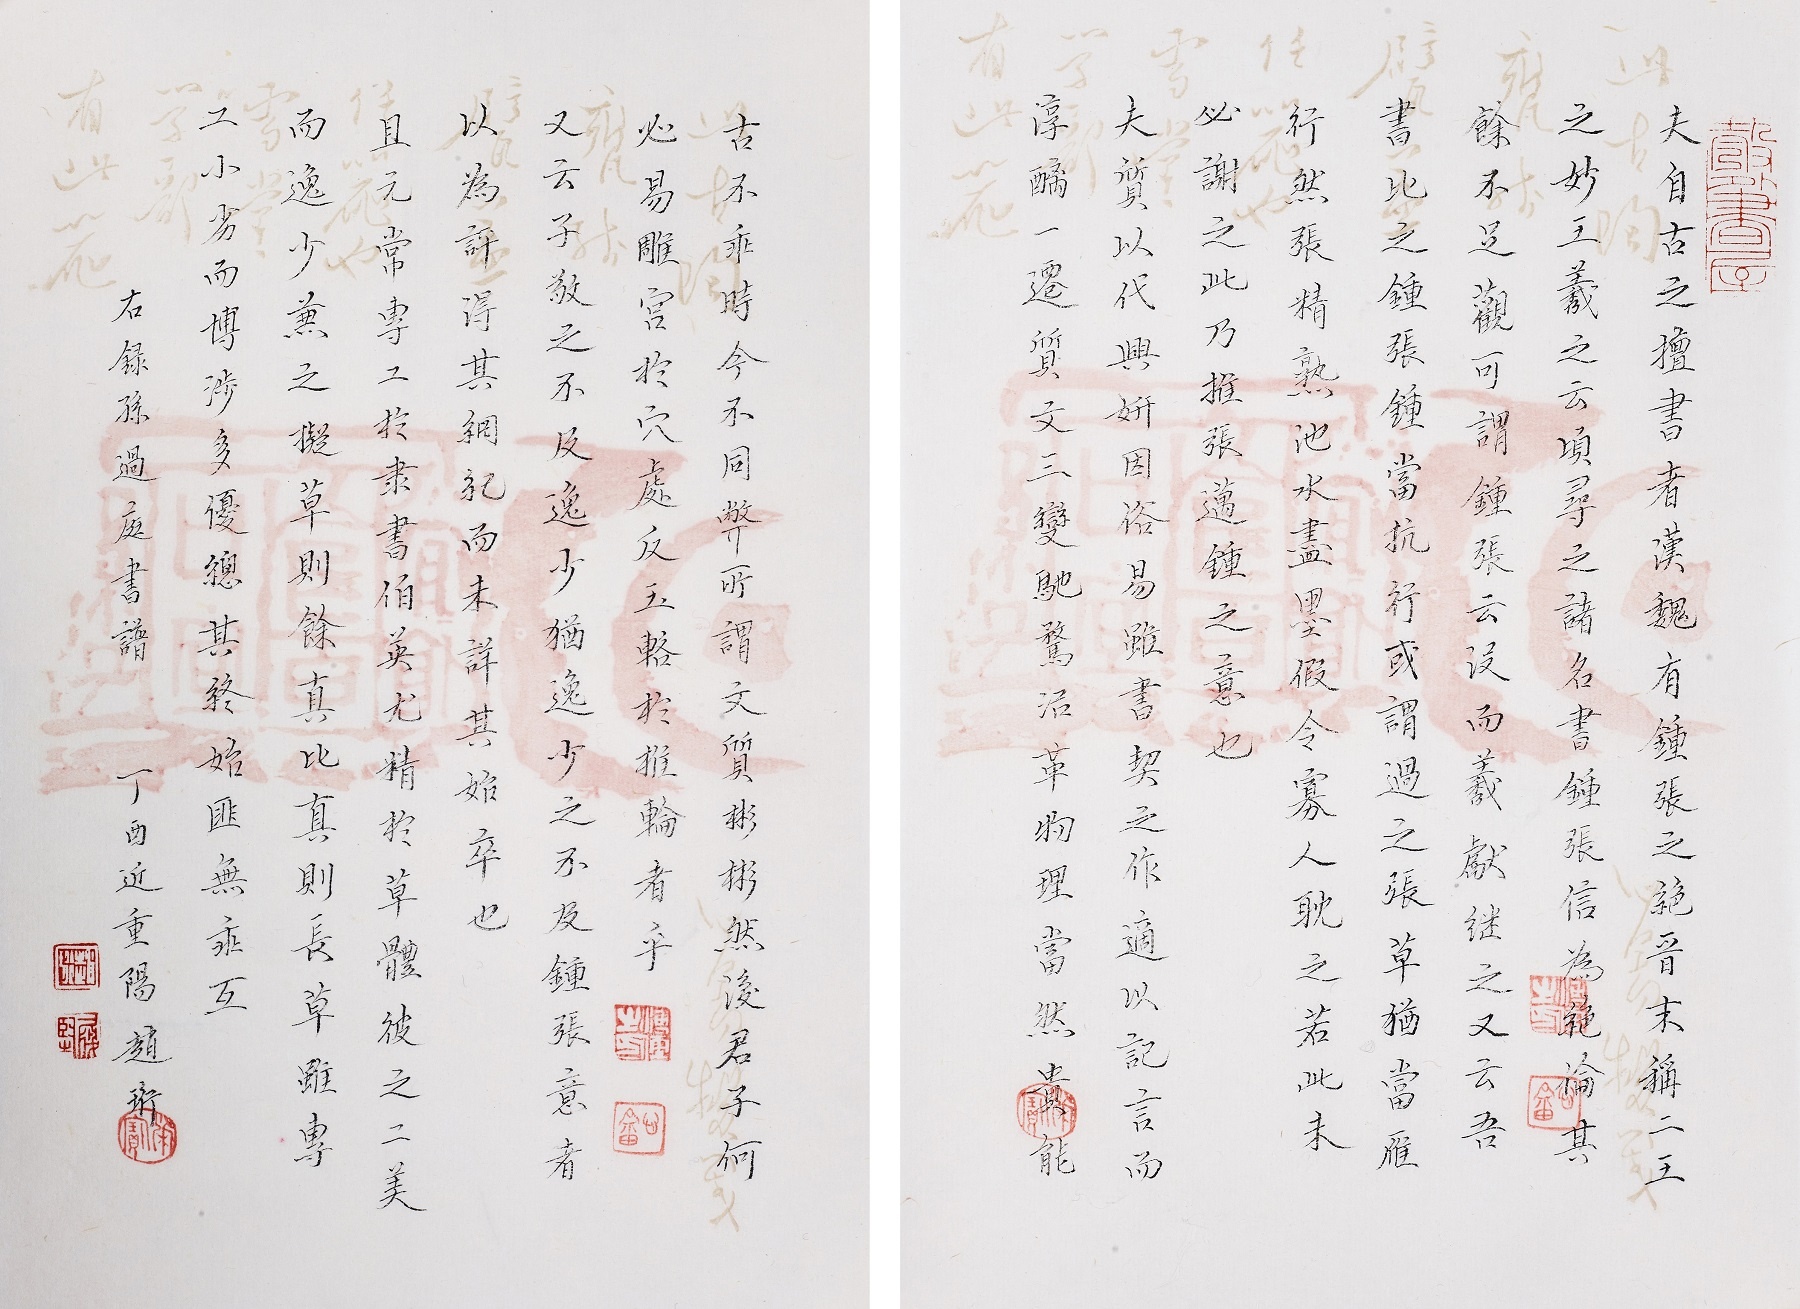 夫自古之擅書者漢魏有鍾張之絕晉末稱二王
之妙王羲之云頃尋之諸名書鍾張信為絕倫其
餘不足觀可謂鍾張云沒而羲獻继之又云吾
書比之鍾張鍾當抗行或謂過之張草猶當雁
行然張精熟池水盡墨假令寡人耽之若此未
必謝之此乃推張邁鍾之意也
夫質以代興妍因俗易雖書契之作適以記言而
淳醨一遷質文三變馳騖沿革物理當然貴能
古不乖時今不同弊所謂文質彬彬然後君子何
必易雕宮於穴處反玉輅於推輪者乎
又云子敬之不及逸少猶逸少之不及鍾張意者
以為評得其綱紀而未詳其始卒也
且元常專工於隶書伯英尤精於草體彼之二美
而逸少兼之擬草則餘真比真則長草雖專
工小劣而博涉多優總其終始匪無乖互
右録孫過庭書譜 丁酉近重陽趙珩